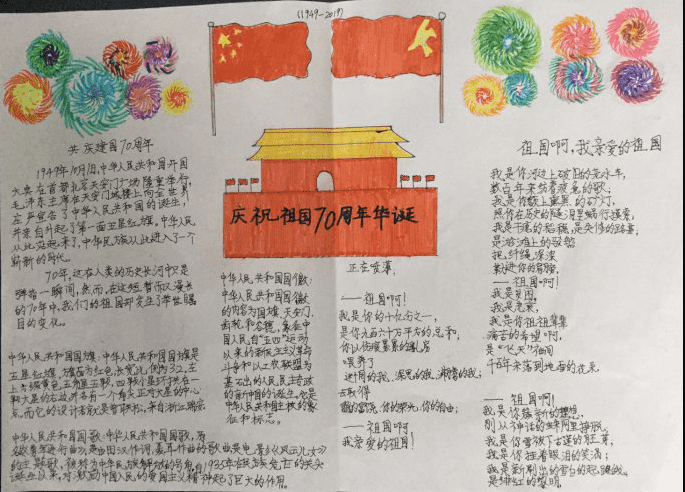 (1949-2019)
共庆建国70周年
1949年10月1日,中华人民共和国开国
大典在首都北京天安门广场隆重举行,
毛泽东主席在天安门城楼上向全世界
庄严宣告了中华人民共和国的诞生,
并亲自升起了第一面五星红旗,中华人民
从此站起来了,中华民族从此进入了一个
崭新的时代。
70年,这在人类的历史长河中只是
弹指一瞬间,然而,在这短暂而又漫长
的70年中,我们的祖国却发生了举世瞩
目的变化。
中华人民共和国国旗:中华人民共和国国旗是
五星红旗,旗面为红色,长宽比例为3:2,左
上方缀黄色五角星五颗,四颗小星环拱在一
颗大星的右边,并各有一个角尖正对大星的中心
点,而它的设计者就是曾联松,来自浙江瑞安
中华人民共和国国歌:中华人民共和国国歌,原
名义勇军进行曲,是由田汉作词,聂耳作曲的歌曲,是电影《风云儿女》
的主题歌,被称为中华民族解放的号角,自1935年在民族危亡的关头
诞生以来,对激励中国人民的爱国主义精神起了巨大的作用。
庆祝祖国70周年华诞
中华人民共和国国徽:
中华人民共和国国徽
的内容为国旗、天安门、
齿轮和谷穗,象征中
国人民自“五四”运动
以来的新民主主义革命
斗争和以工农联盟为
基石出的人民民主专政
的新中国的诞生,它是
中华人民共和国主权的象
征和标志。
正在喷薄;
——祖国啊!
我是你的十亿分之一,
是你九百六十万平方的总和,
你以伤痕累累的乳房
喂养了
迷惘的我、深思的我、沸腾的我;
去取得
你的荣光,你的自由;
——祖国啊!
我亲爱的祖国!
祖国啊,我亲爱的祖国
我是你河边上破旧的老水车,
数百年来纺着疲惫的歌,
我是你额上熏黑的矿灯,
照你在历史的隧洞里蜗行摸索,
我是干瘪的稻穗,是失修的路基;
是淤滩上的驳船
把纤绳深深
勒进你的肩膊,
——祖国啊!
我是贫困,
我是悲哀,
我是你祖祖辈辈
痛苦的希望啊,
是“飞天”袖间
千百年未落到地面的花朵
——祖国啊!
我是你簇新的理想,
刚从神话的蛛网里挣脱,
我是你雪被下古莲的胚芽,
我是你挂着眼泪的笑涡;
我是新刷出的雪白的起跑线,
是绯红的黎明